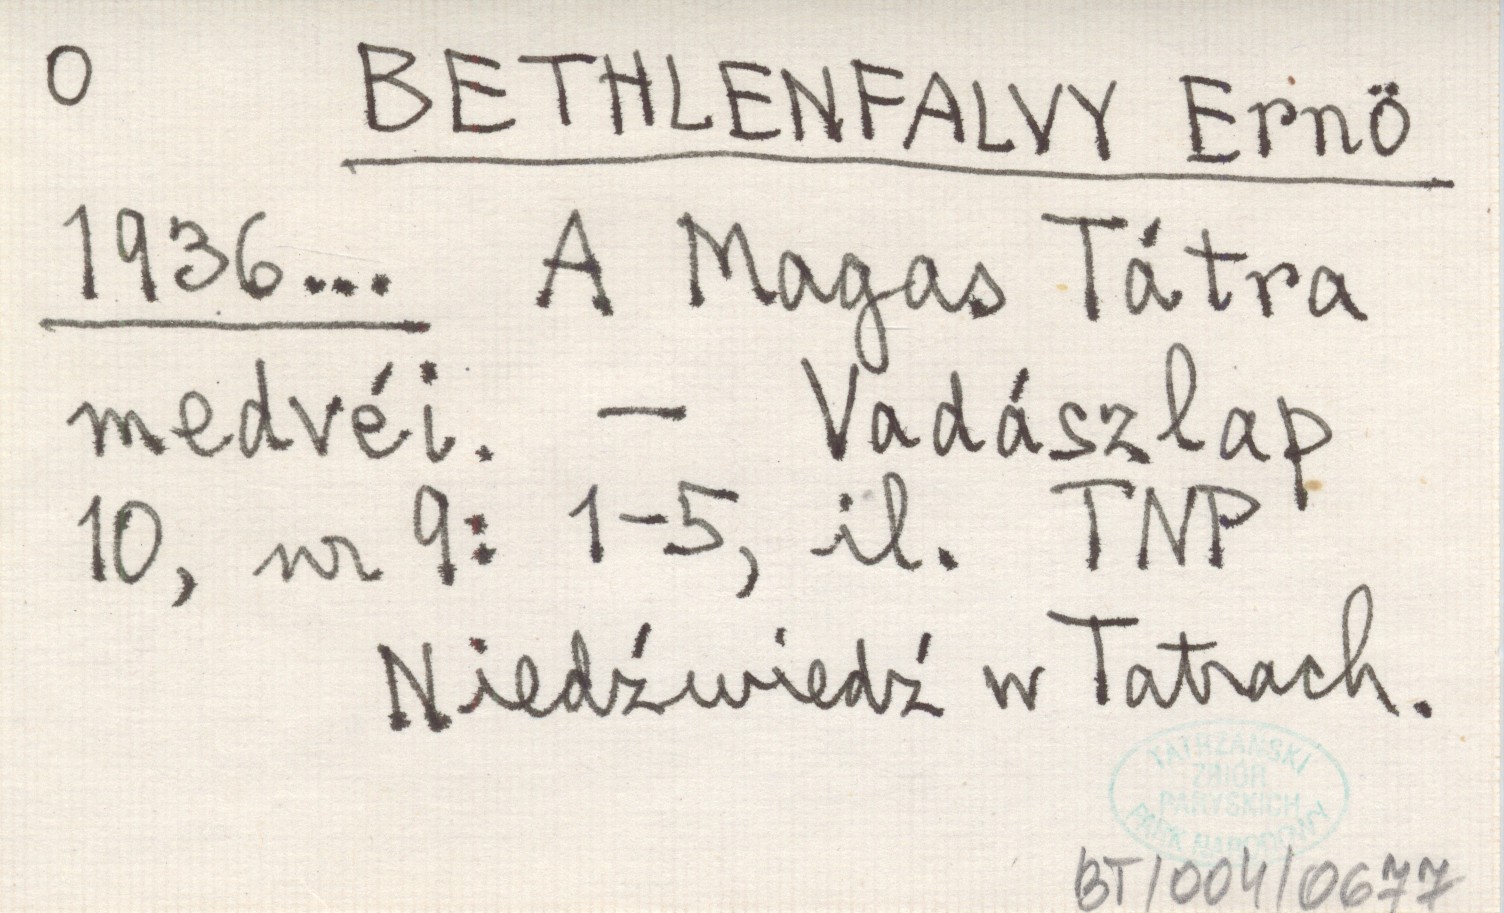 O BETHLENFALVY Ernö
1936... A Magas Tátra
medvéi. – Vadászlap
10, nr 9: 1-5, il. TNP
Niedźwiedź w Tatrach.
TATRZAŃSKI
ZBIÓR
PARYSKICH
PARK NARODOWY
BT/004/0677